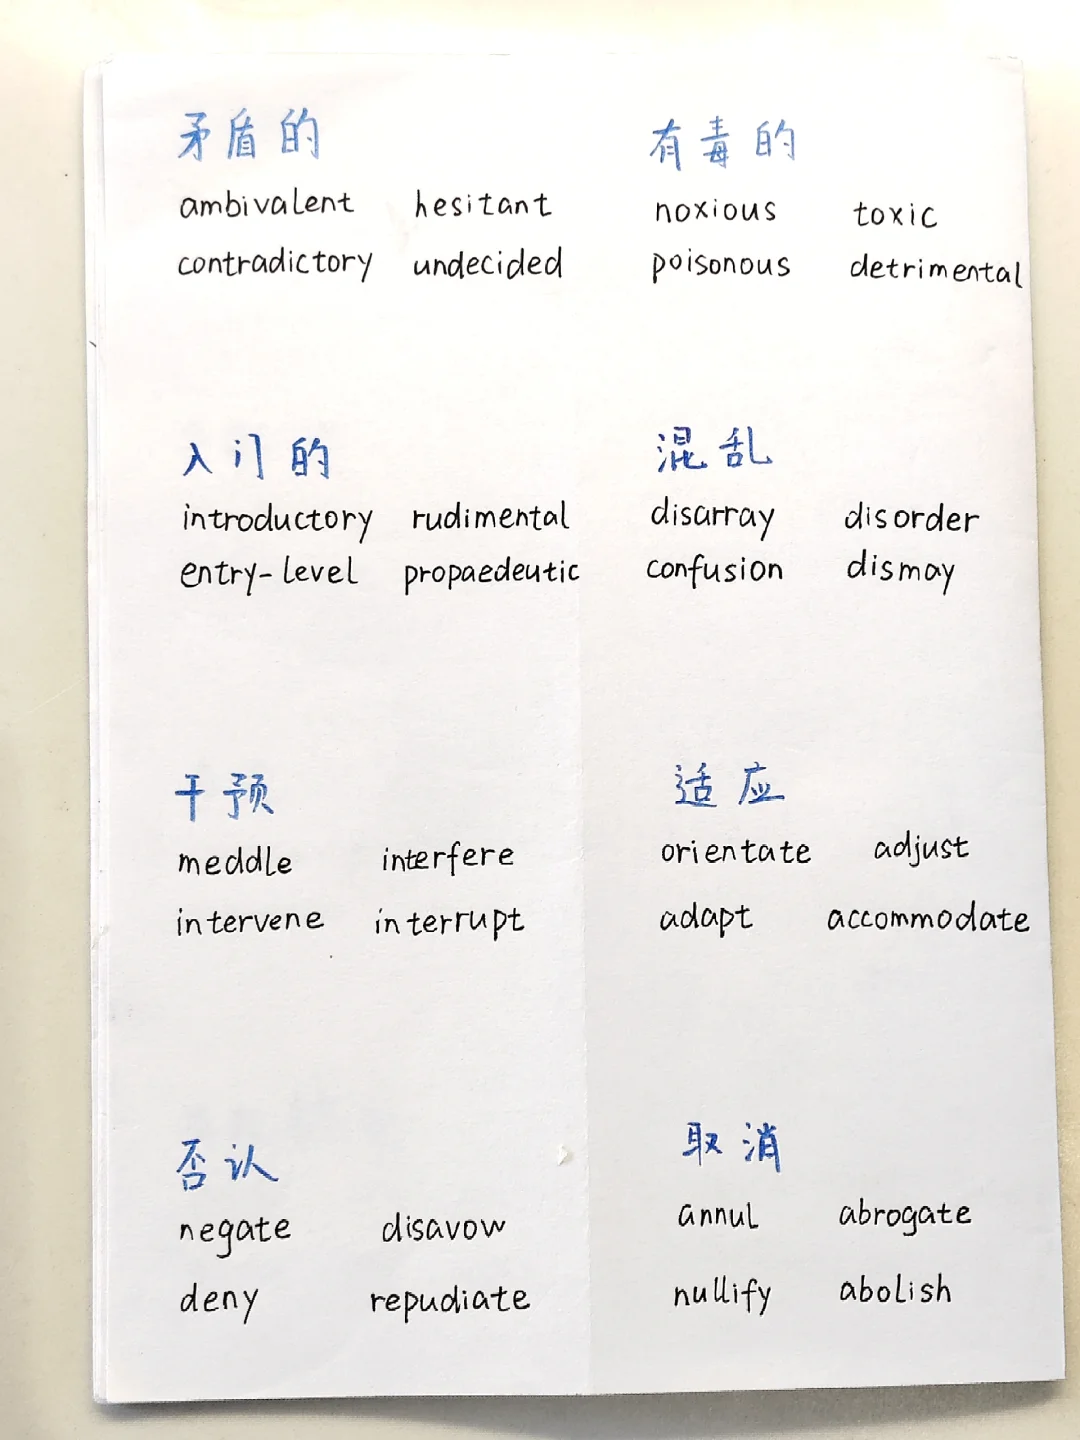 矛盾的
ambivalent hesitant
contradictory undecided
有毒的
noxious toxic
poisonous detrimental
入门的
introductory rudimental
entry-level propaedeutic
混乱
disarray disorder
confusion dismay
干预
meddle interfere
intervene interrupt
适应
orientate adjust
adapt accommodate
否认
negate disavow
deny repudiate
取消
annul abrogate
nullify abolish